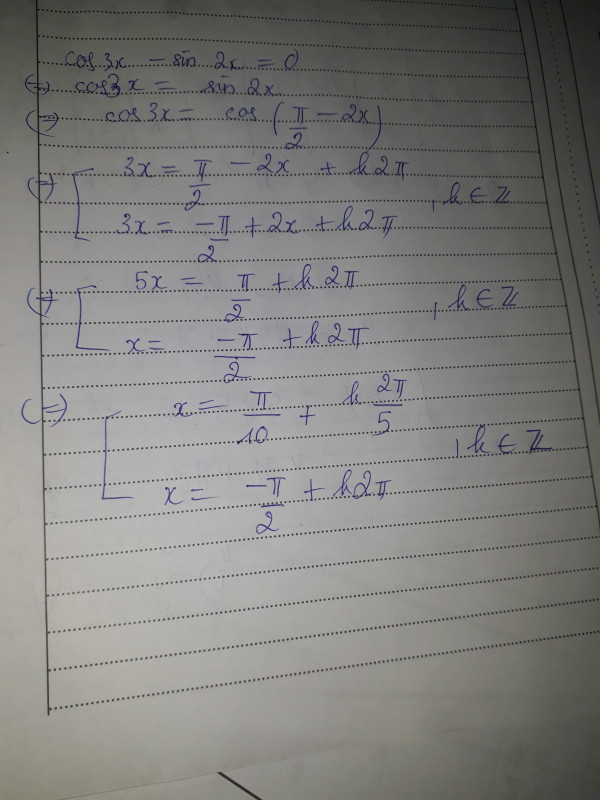 cos 3x - sin 2x = 0
(=) cos3x = sin 2x
(=) cos 3x = cos (π/2 - 2x)
(=) [ 3x = π/2 - 2x + k2π
3x = -π/2 + 2x + k2π , k ∈ ℤ
(=) [ 5x = π/2 + k2π
x = -π/2 + k2π , k ∈ ℤ
(=) [ x = π/10 + k 2π/5
x = -π/2 + k2π , k ∈ ℤ